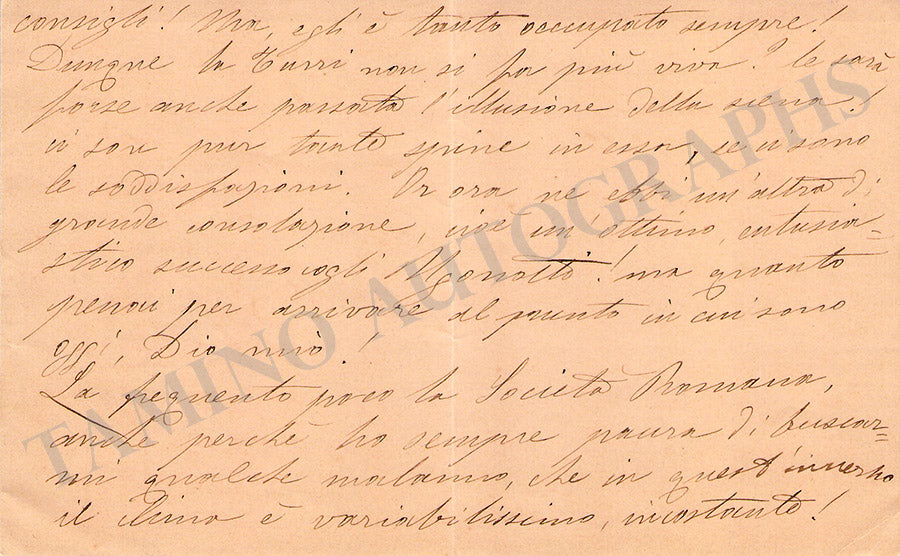 consigli! Ma, egli è tanto occupato sempre!
Dunque la Turri non si fa più viva? le sarà
forse anche passata l'illusione della scena!
ci son pur tante spine in essa, se ci sono
le soddisfazioni. Or ora ne ebbi un'altra di
grande consolazione, cioè un ottimo, entusia=
stico successo cogli Ugonotti! ma quanto
penai per arrivare al punto in cui sono
oggi, Dio mio!
La frequento poco la Società Romana,
anche perchè ho sempre paura di buscar=
mi qualche malanno, che in quest'inverno
il clima è variabilissimo, incostante!
TAMINO AUTOGRAPHS